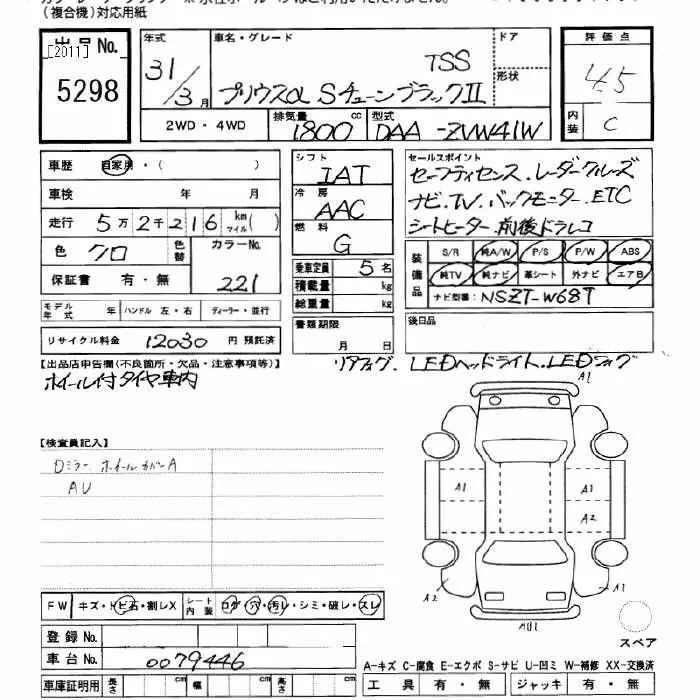 (複合機)対応用紙
出品 No.
[2011]
5298
年式 31/3月
車名・グレード
TSS
プリウスα SチューンブラックⅡ
ドア
形状
評価点
4.5
内装 C
2WD・4WD
排気量 1800 cc
型式 DAA-ZVW41W
車歴 自家用・( )
車検 年 月
走行 5万2千216 km マイル( )
色 クロ
色替
カラーNo. 221
保証書 有・無
モデル年式 年
ハンドル 左・右
ディーラー・並行
リサイクル料金 12030 円 預託済
シフト IAT
冷房 AAC
燃料 G
乗車定員 5名
積載量 kg
総重量 kg
書類期限 月 日
セールスポイント
セーフティセンス.レーダークルーズ
ナビ.TV.バックモニター.ETC
シートヒーター.前後ドラレコ
装備品
S/R 純A/W P/S P/W ABS
純TV 純ナビ 革シート 外ナビ エアB
ナビ型番: NSZT-W68T
後日品
リアフォグ.LEDヘッドライト.LEDフォグ
【出品店申告欄(不良箇所・欠品・注意事項等)】
ホイール付タイヤ車内
【検査員記入】
Dミラー ホイールカバーA
AU
A1
A1
A1
A2
A2
A2
AU1
スペア
FW キズ・トビ石・割レX
シート内装 コゲ・穴・汚レ・シミ・破レ・スレ
登録 No.
車台 No. 0079446
A-キズ C-腐食 E-エクボ S-サビ U-凹ミ W-補修 XX-交換済
車庫証明用 長さ cm 幅 cm 高さ cm
工具 有・無 ジャッキ 有・無